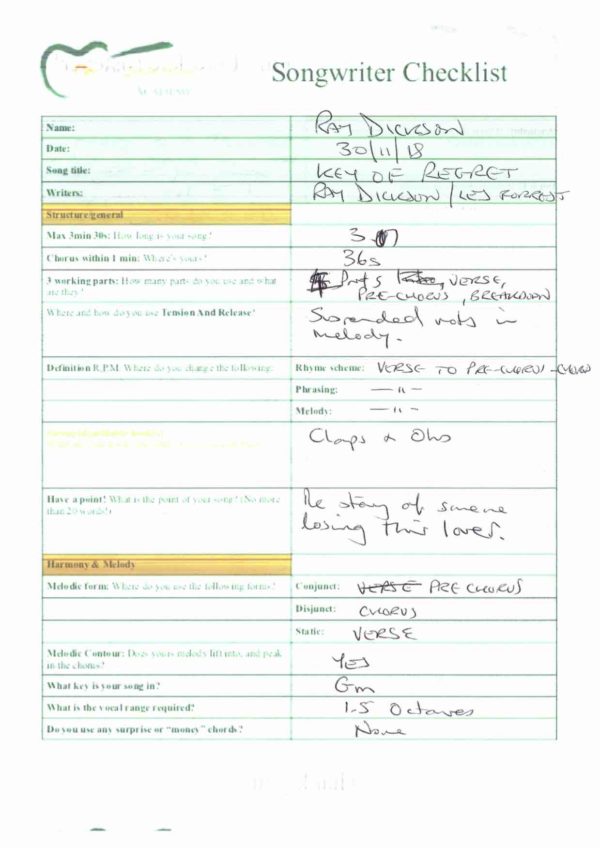 ACADEMY
Songwriter Checklist
Name: RAY DICKSON
Date: 30/11/18
Song title: KEY OF REGRET
Writers: RAY DICKSON / LES FORREST
Structure/general
Max 3min 30s: How long is your song? 3.
Chorus within 1 min: Where's yours? 36s
3 working parts: How many parts do you use and what Parts , VERSE,
are they? PRE-CHORUS, BREAKDOWN
Where and how do you use Tension And Release? Suspended nots in
melody.
Definition R.P.M: Where do you change the following: Rhyme scheme: VERSE TO PRE-CHORUS - CHORUS
Phrasing: — 11 —
Melody: — 11 —
Claps & Ohs
Have a point! What is the point of your song? (No more The story of someone
than 20 words!) losing their lover.
Harmony & Melody
Melodic form: Where do you use the following forms? Conjunct: VERSE PRE CHORUS
Disjunct: CHORUS
Static: VERSE
Melodic Contour: Does yours melody lift into, and peak YES
in the chorus?
What key is your song in? Gm
What is the vocal range required? 1.5 Octaves
Do you use any surprise or "money" chords? None